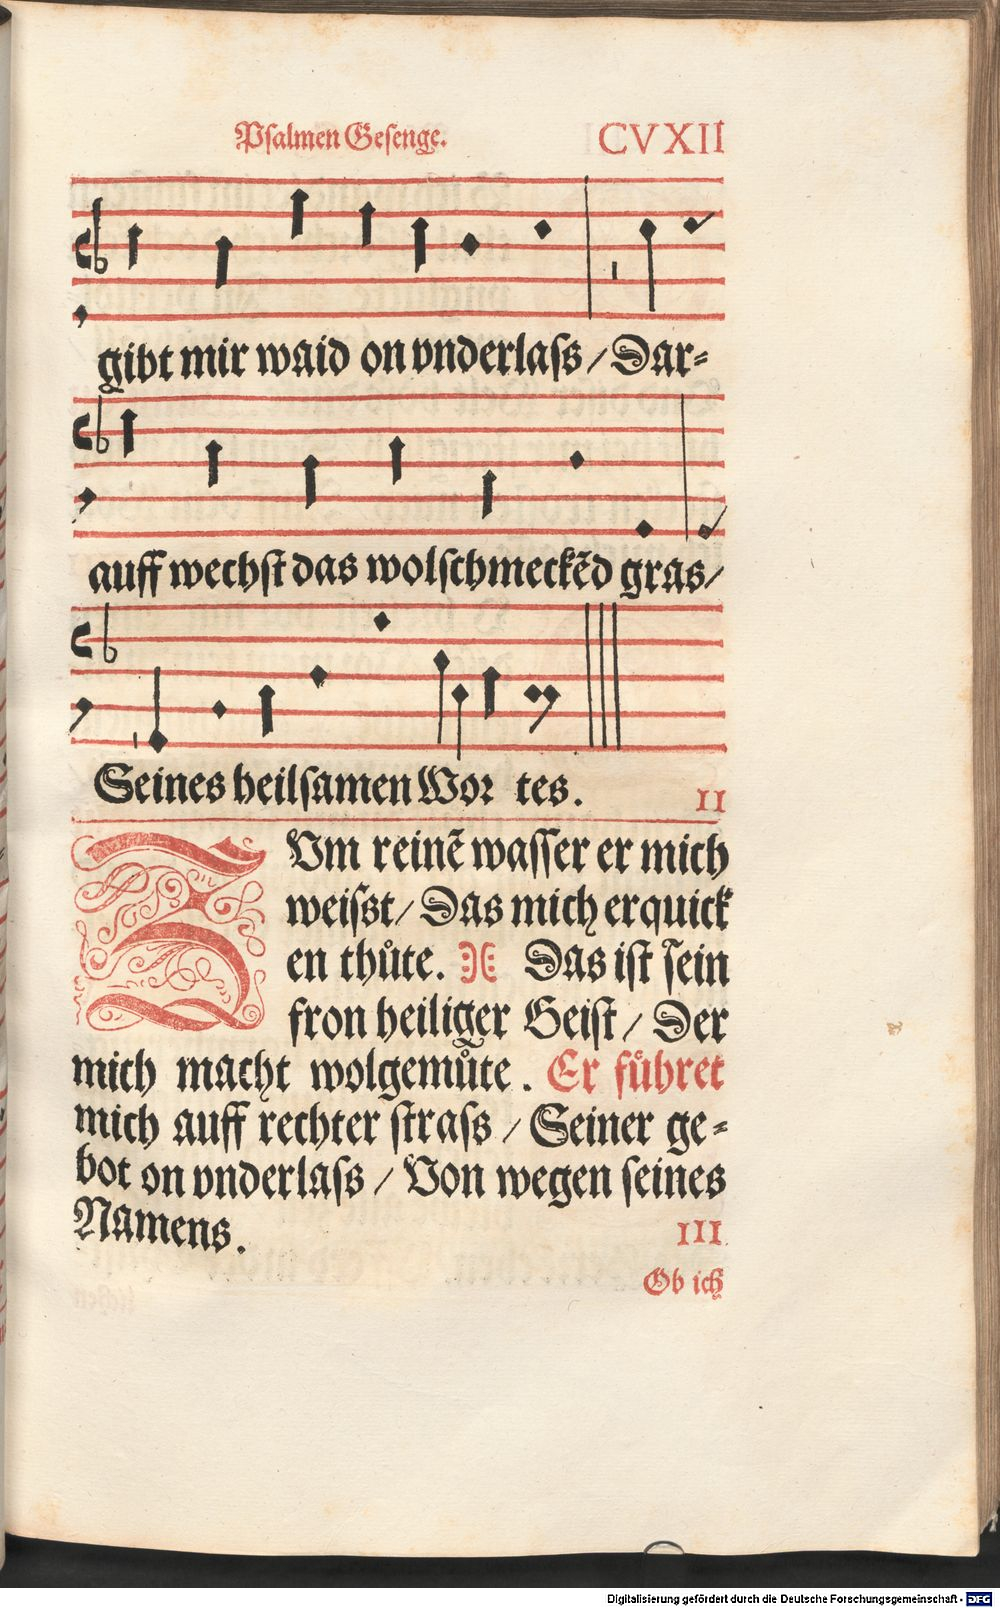 Psalmen Gesenge. CVXII
gibt mir waid on vnderlaſs / Dar⸗
auff wechſt das wolſchmeckẽd gras /
Seines heilſamen Wor tes.
II
ZVm reinẽ waſſer er mich
weiſst / Das mich erquick
en thůte. Das iſt ſein
fron heiliger Geiſt / Der
mich macht wolgemůte. Er fůhret
mich auff rechter ſtraſs / Seiner ge⸗
bot on vnderlaſs / Von wegen ſeines
Namens.
III
Ob ich
Digitalisierung gefördert durch die Deutsche Forschungsgemeinschaft - DFG